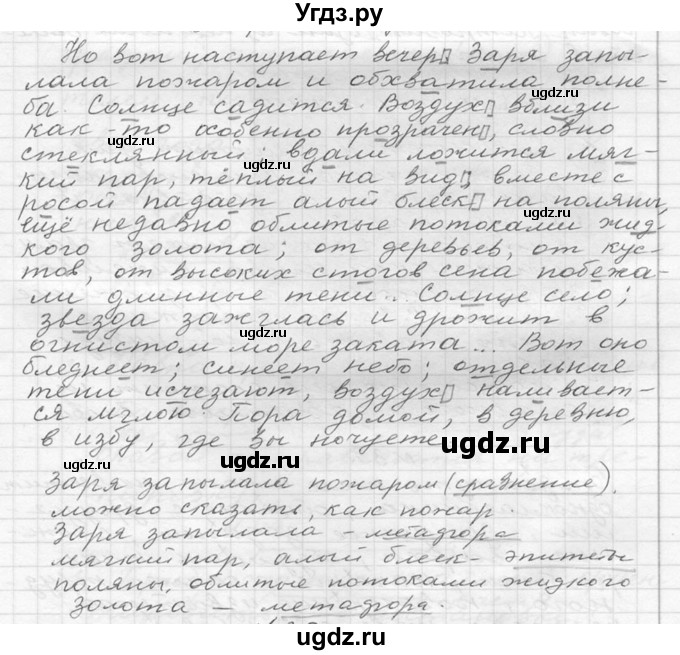 Угдз.ру
Но вот наступает вечер. Заря запы-
лала пожаром и обхватила полне-
ба. Солнце садится. Воздух вблизи
как-то особенно прозрачен, словно
стеклянный; вдали ложится мяг-
кий пар, тёплый на вид; вместе с
росой падает алый блеск на поляны,
ещё недавно облитые потоками жид-
кого золота; от деревьев, от кус-
тов, от высоких стогов сена побежа-
ли длинные тени... Солнце село;
звезда зажглась и дрожит в
огнистом море заката... Вот оно
бледнеет; синеет небо; отдельные
тени исчезают, воздух наливает-
ся мглою. Пора домой, в деревню,
в избу, где вы ночуете.
Заря запылала пожаром (сравнение).
можно сказать, как пожар.
Заря запылала - метафора
мягкий пар, алый блеск - эпитеты
поляны, облитые потоками жидкого
золота - метафора.
ugdz.ru